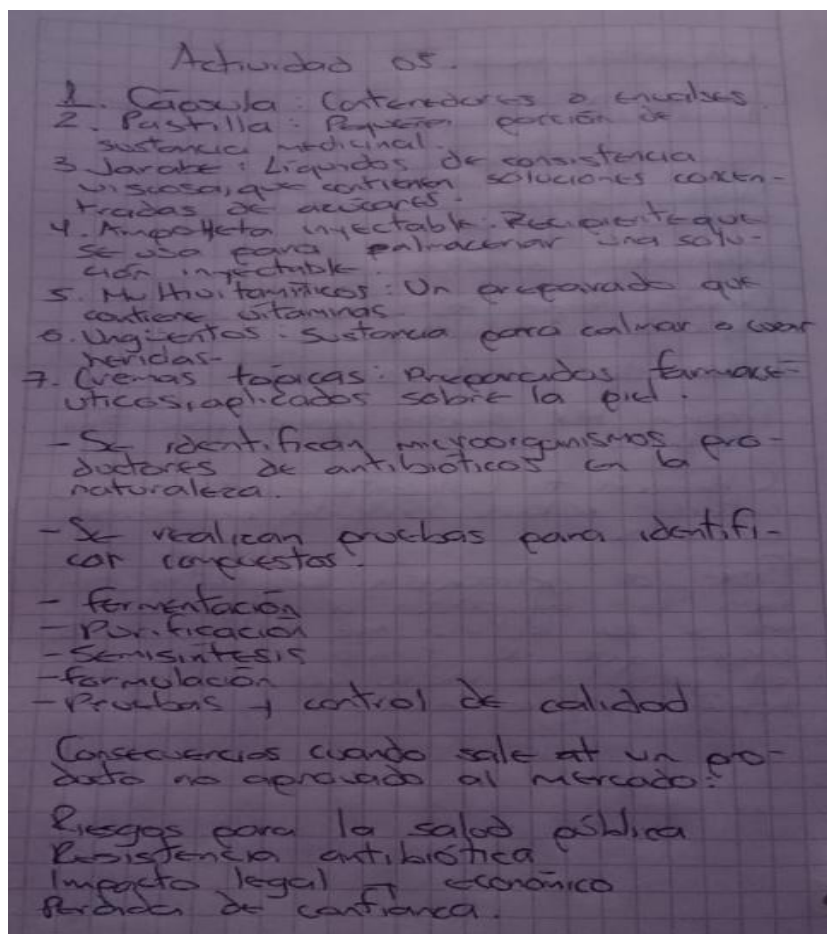 Actividad 05.
1. Cápsula: Contenedores o envases
2. Pastilla: Pequeña porción de
sustancia medicinal.
3. Jarabe: Líquidos de consistencia
viscosa, que contienen soluciones concen-
tradas de azúcares.
4. Ampolleta inyectable: Recipiente que
se usa para palmacenar una solu-
ción inyectable.
5. Multivitamínicos: Un preparado que
contiene vitaminas
6. Ungüentos: Sustancia para calmar o curar
heridas-
7. Cremas tópicas: Preparados farmacé-
uticos, aplicados sobre la piel.
- Se identifican microorganismos pro-
ductores de antibióticos en la
naturaleza.
- Se realizan pruebas para identifi-
car compuestos.
- fermentación
- Purificación
- Semisíntesis
- formulación
- Pruebas y control de calidad
Consecuencias cuando sale un pro-
ducto no aprovado al mercado:
Riesgos para la salud pública
Resistencia antibiótica
Impacto legal y económico
Perdida de confianza.